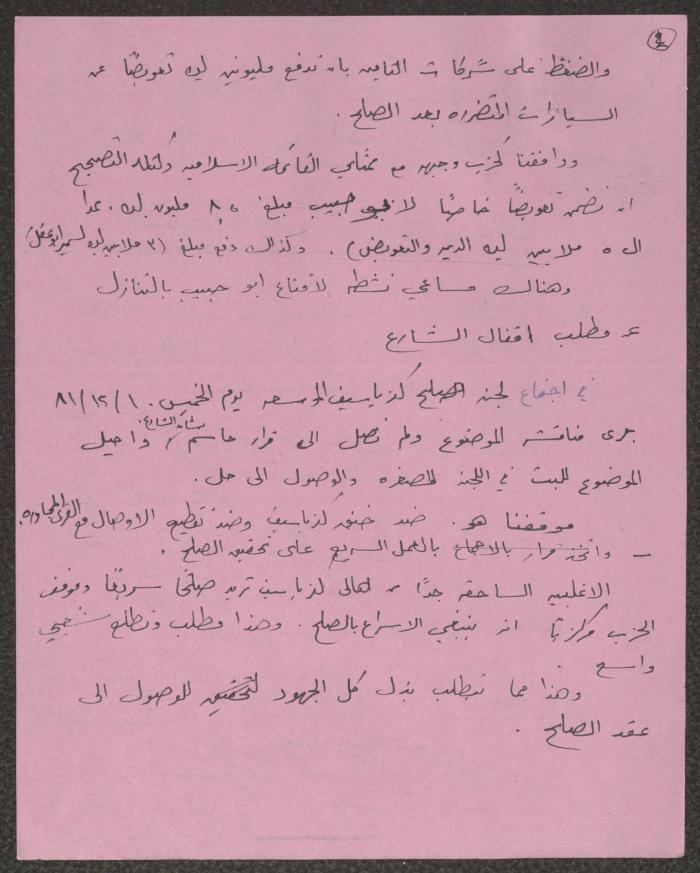 ٤
والضغط على شركات التامين بان تدفع مليونين ليره تعويضًا عن
السيارات المتضرره بعد الصلح .
ووافقنا كحزب وجبهه مع ممثلي القائمه الاسلاميه وكتله التصحيح
ان نضمن تعويضًا خاصًا لابو حبيب مبلغ ٨,٥ مليون ليره . عدا
ال ٥ ملايين ليره الديه والتعويض) . وكذلك دفع مبلغ (٣ ملايين ليره لسمير ابو عقل)
وهناك مساعي نشطه لاقناع ابو حبيب بالتنازل
عن مطلب اقفال الشارع
في اجتماع لجنه الصلح كفرياسيف الموسعه يوم الخميس ٨١/١٢/١٠
جرى مناقشه الموضوع ولم نصل الى قرار حاسم بشأن الشارع . واحيل
الموضوع للبت في اللجنه المصغره والوصول الى حل .
موقفنا هو . ضد خنق كفرياسيف وضد تقطيع الاوصال مع القرى المجاوره .
– واتخذ قرار بالاجماع بالعمل السريع على تحقيق الصلح .
الاغلبيه الساحقه جدًا من اهالي كفرياسيف تريد صلحًا سريعًا وموقف
الحزب مركزيًا انه ينبغي الاسراع بالصلح . وهذا مطلب وتطلع شعبي
واسع .
وهذا مما يتطلب بذل كل الجهود لتحقيق للوصول الى
عقد الصلح .